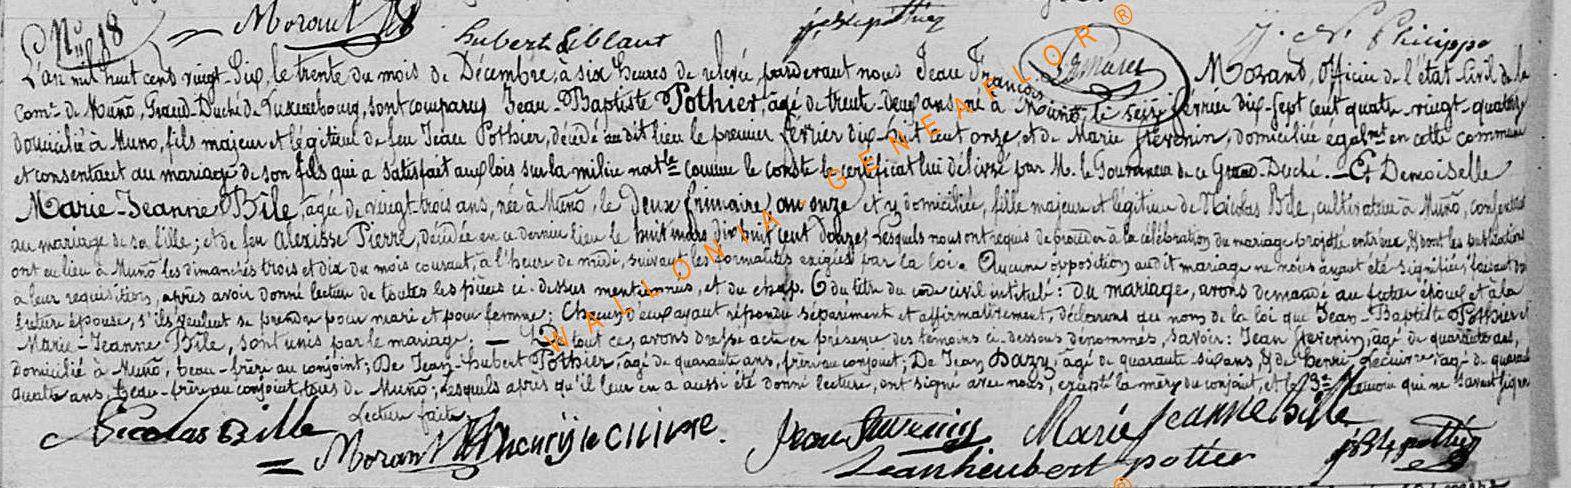 Nº 18
Morand
hubert Leblanc
jpb pothier
J. N. Philippe
L'an mil huit cent vingt-six, le trente du mois de Décembre, à six heures de relevée, pardevant nous Jean François Morand, Officier de l'état-Civil de la
Comᵉ de Muño, Grand-Duché de Luxembourg, sont comparus Jean-Baptiste Pothier, âgé de trente-deux ans, né à Muño, le seize février dix-sept cent quatre-vingt-quatorze
domicilié à Muno, fils majeur et légitime de feu Jean Pothier, décédé audit lieu le premier février dix-huit cent onze, et de Marie Gevenin, domiciliée égalᵐᵗ en cette commune
et consentant au mariage de son fils qui a satisfait aux lois sur la milice natˡᵉ comme le conste le certificat lui délivré par M. le Gouverneur de ce Grand-Duché. — Et Demoiselle
Marie-Jeanne Bile, âgée de vingt-trois ans, née à Muño, le deux frimaire an onze et y domiciliée, fille majeure et légitime de Nicolas Bile, cultivateur à Muño, consentant
au mariage de sa fille; et de feu Alexisse Pierre, décédée en ce dernier lieu le huit mars dix huit cent douze; lesquels nous ont requis de procéder à la célébration du mariage projetté entr'eux, & dont les publications
ont eu lieu à Muño les dimanches trois et dix du mois courant, à l'heure de midi, suivant les formalités exigées par la loi. Aucune opposition audit mariage ne nous ayant été signifiée, faisant droit
à leur réquisition, après avoir donné lecture de toutes les pièces ci-dessus mentionnées, et du chap. 6 du titre du code civil intitulé: du mariage, avons demandé au futur époux et à la
future épouse, s'ils veulent se prendre pour mari et pour femme; Chacun d'eux ayant répondu séparément et affirmativement, déclarons au nom de la loi que Jean-Baptiste Pothier et
Marie-Jeanne Bile, sont unis par le mariage; — De tout ce, avons dressé acte en présence des témoins ci-dessous dénommés, savoir: Jean Gevenin, âgé de quarante ans,
domicilié à Muño, beau-frère au conjoint; De Jean-hubert Pothier, âgé de quarante ans, frère au conjoint; De Jean Dazy, âgé de quarante-six ans, & de henri Lecuivre, âgé de quarante
quatre ans, beau-frère au conjoint, tous de Muño; lesquels après qu'il leur en a aussi été donné lecture, ont signé avec nous, excepté la mère du conjoint, et le 3ᵉ témoin qui ne savent signer
Lecture faite
Nicolas Bille
Morand
henrÿ le cuivre.
Jean Gevenin
Marie Jeanne Bille
Jean heubert potier
jpb pothier
WALLONIA-GENEAFLOR®